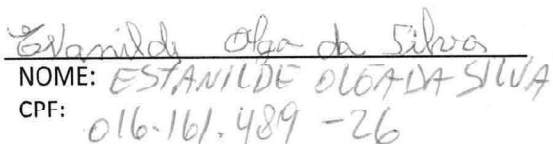 Estanilde Olga da Silva
NOME: ESTANILDE OLGA DA SILVA
CPF:
016.161.489-26